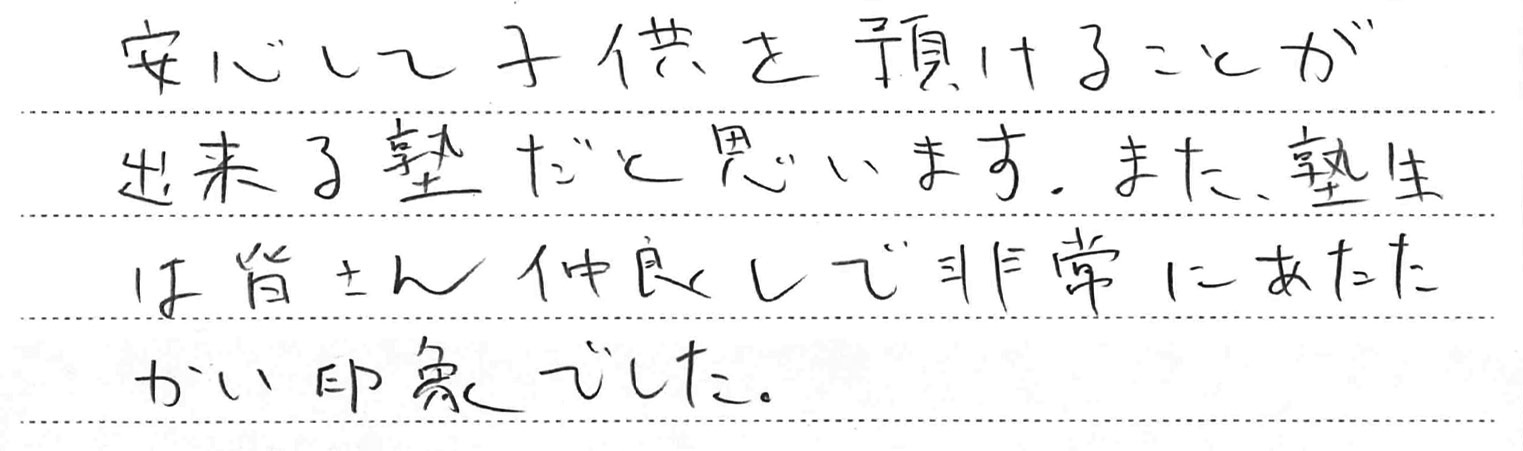 安心して子供を預けることが
出来る塾だと思います。また、塾生
は皆さん仲良しで非常にあたた
かい印象でした。